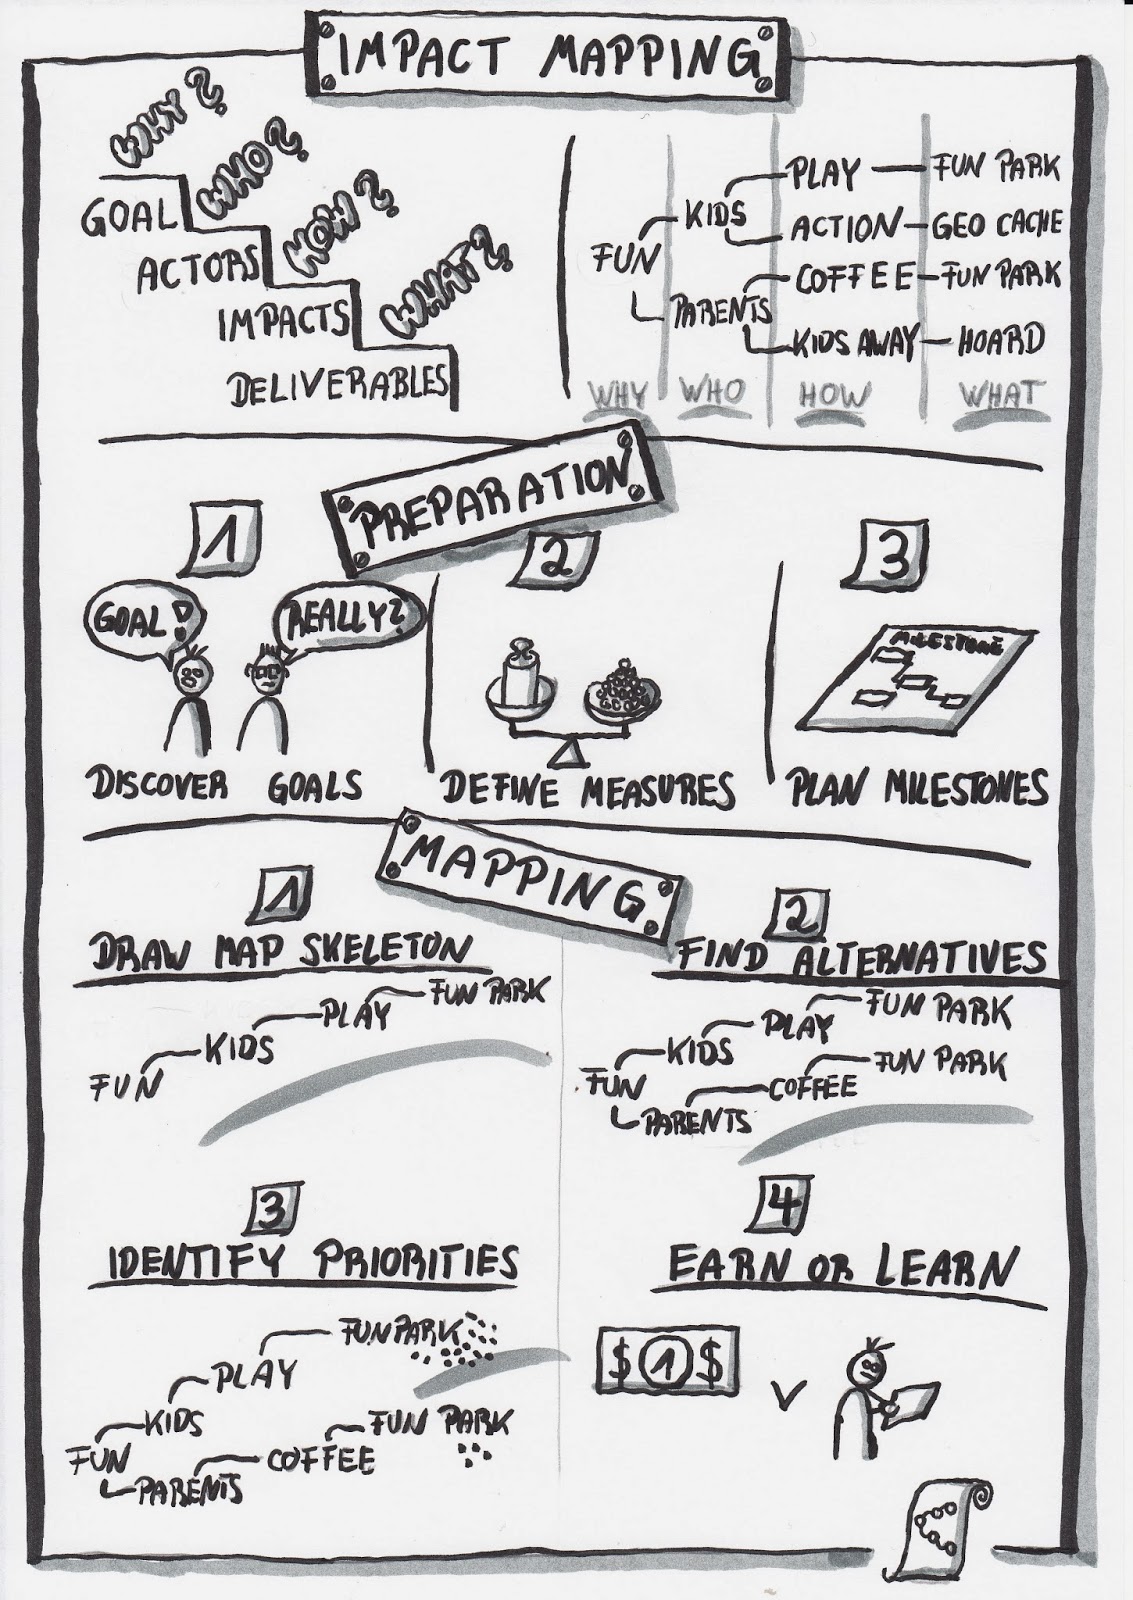 IMPACT MAPPING
WHY?
GOAL
WHO?
ACTORS
HOW?
IMPACTS
WHAT?
DELIVERABLES
FUN
KIDS
PLAY
FUN PARK
ACTION
GEO CACHE
PARENTS
COFFEE
FUN PARK
KIDS AWAY
HOARD
WHY
WHO
HOW
WHAT
PREPARATION
1
GOAL!
REALLY?
DISCOVER GOALS
2
DEFINE MEASURES
3
MILESTONE
PLAN MILESTONES
MAPPING
1
DRAW MAP SKELETON
FUN
KIDS
PLAY
FUN PARK
2
FIND ALTERNATIVES
FUN
KIDS
PLAY
FUN PARK
PARENTS
COFFEE
FUN PARK
3
IDENTIFY PRIORITIES
FUN
KIDS
PLAY
FUN PARK
PARENTS
COFFEE
FUN PARK
4
EARN OR LEARN
$ 1 $
V